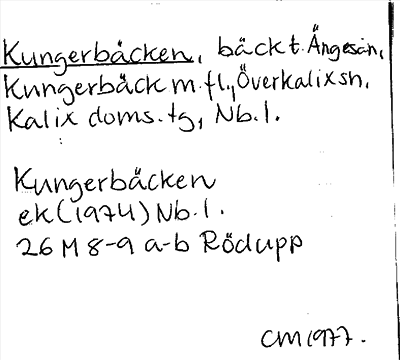 Kungerbäcken, bäck t. Ängesån,
Kungerbäck m.fl., Överkalix sn,
Kalix doms.tg, Nb.l.
Kungerbäcken
ek (1974) Nb.l.
26 M 8-9 a-b Rödupp
CM 1977.